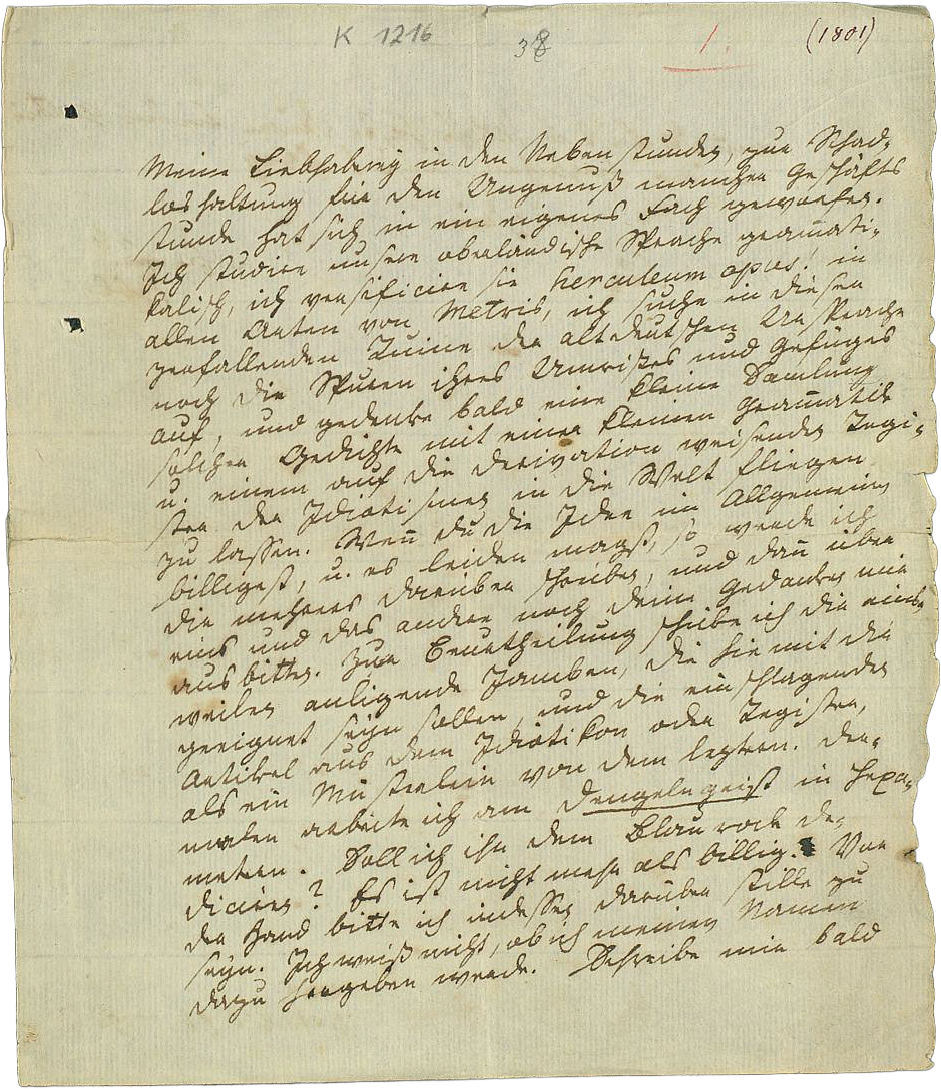 K 1216 38 1. (1801)
Meine Liebhaberey in den Nebenstunden, zur Schad-
loshaltung für den Ungenuß mancher Geschäfts
stunde hat sich in ein eigenes Fach geworfen.
Ich studire unsere oberländische Sprache gram̄ati-
kalisch, ich versificire sie herculeum opus! in
allen Arten von Metris, ich suche in dieser
zerfallenden Ruine der altdeutschen Ursprache
noch die Spuren ihres Umrisses und Gefüges
auf, und gedenke bald eine kleine Samlung
solcher Gedichte mit einer kleinen Gram̄atik
u. einem auf die Derivation weisenden Regi-
ster der Idiotismen in die Welt fliegen
zu lassen. Wen̄ du die Idee im Allgemeinen
billigest, u. es leiden magst, so werde ich
dir mehrers darüber schreiben, und dan̄ über
eins und das andere noch deine Gedanken mir
ausbitten. Zur Beurtheilung schicke ich dir einst-
weilen anligende Jamben, die hiemit dir
geeignet seyn sollen, und die einschlagenden
Artikel aus dem Idiotikon oder Register,
als ein Musterlein von dem leztern. Der-
malen arbeite ich am Dengelegeist in Hexa-
metern. Soll ich ihn dem Blaurock de-
diciren? Es ist nicht mehr als billig. Vor
der Hand bitte ich indessen darüber stille zu
seyn. Ich weiß nicht, ob ich meinen Namen
dazu hergeben werde. Schreibe mir bald